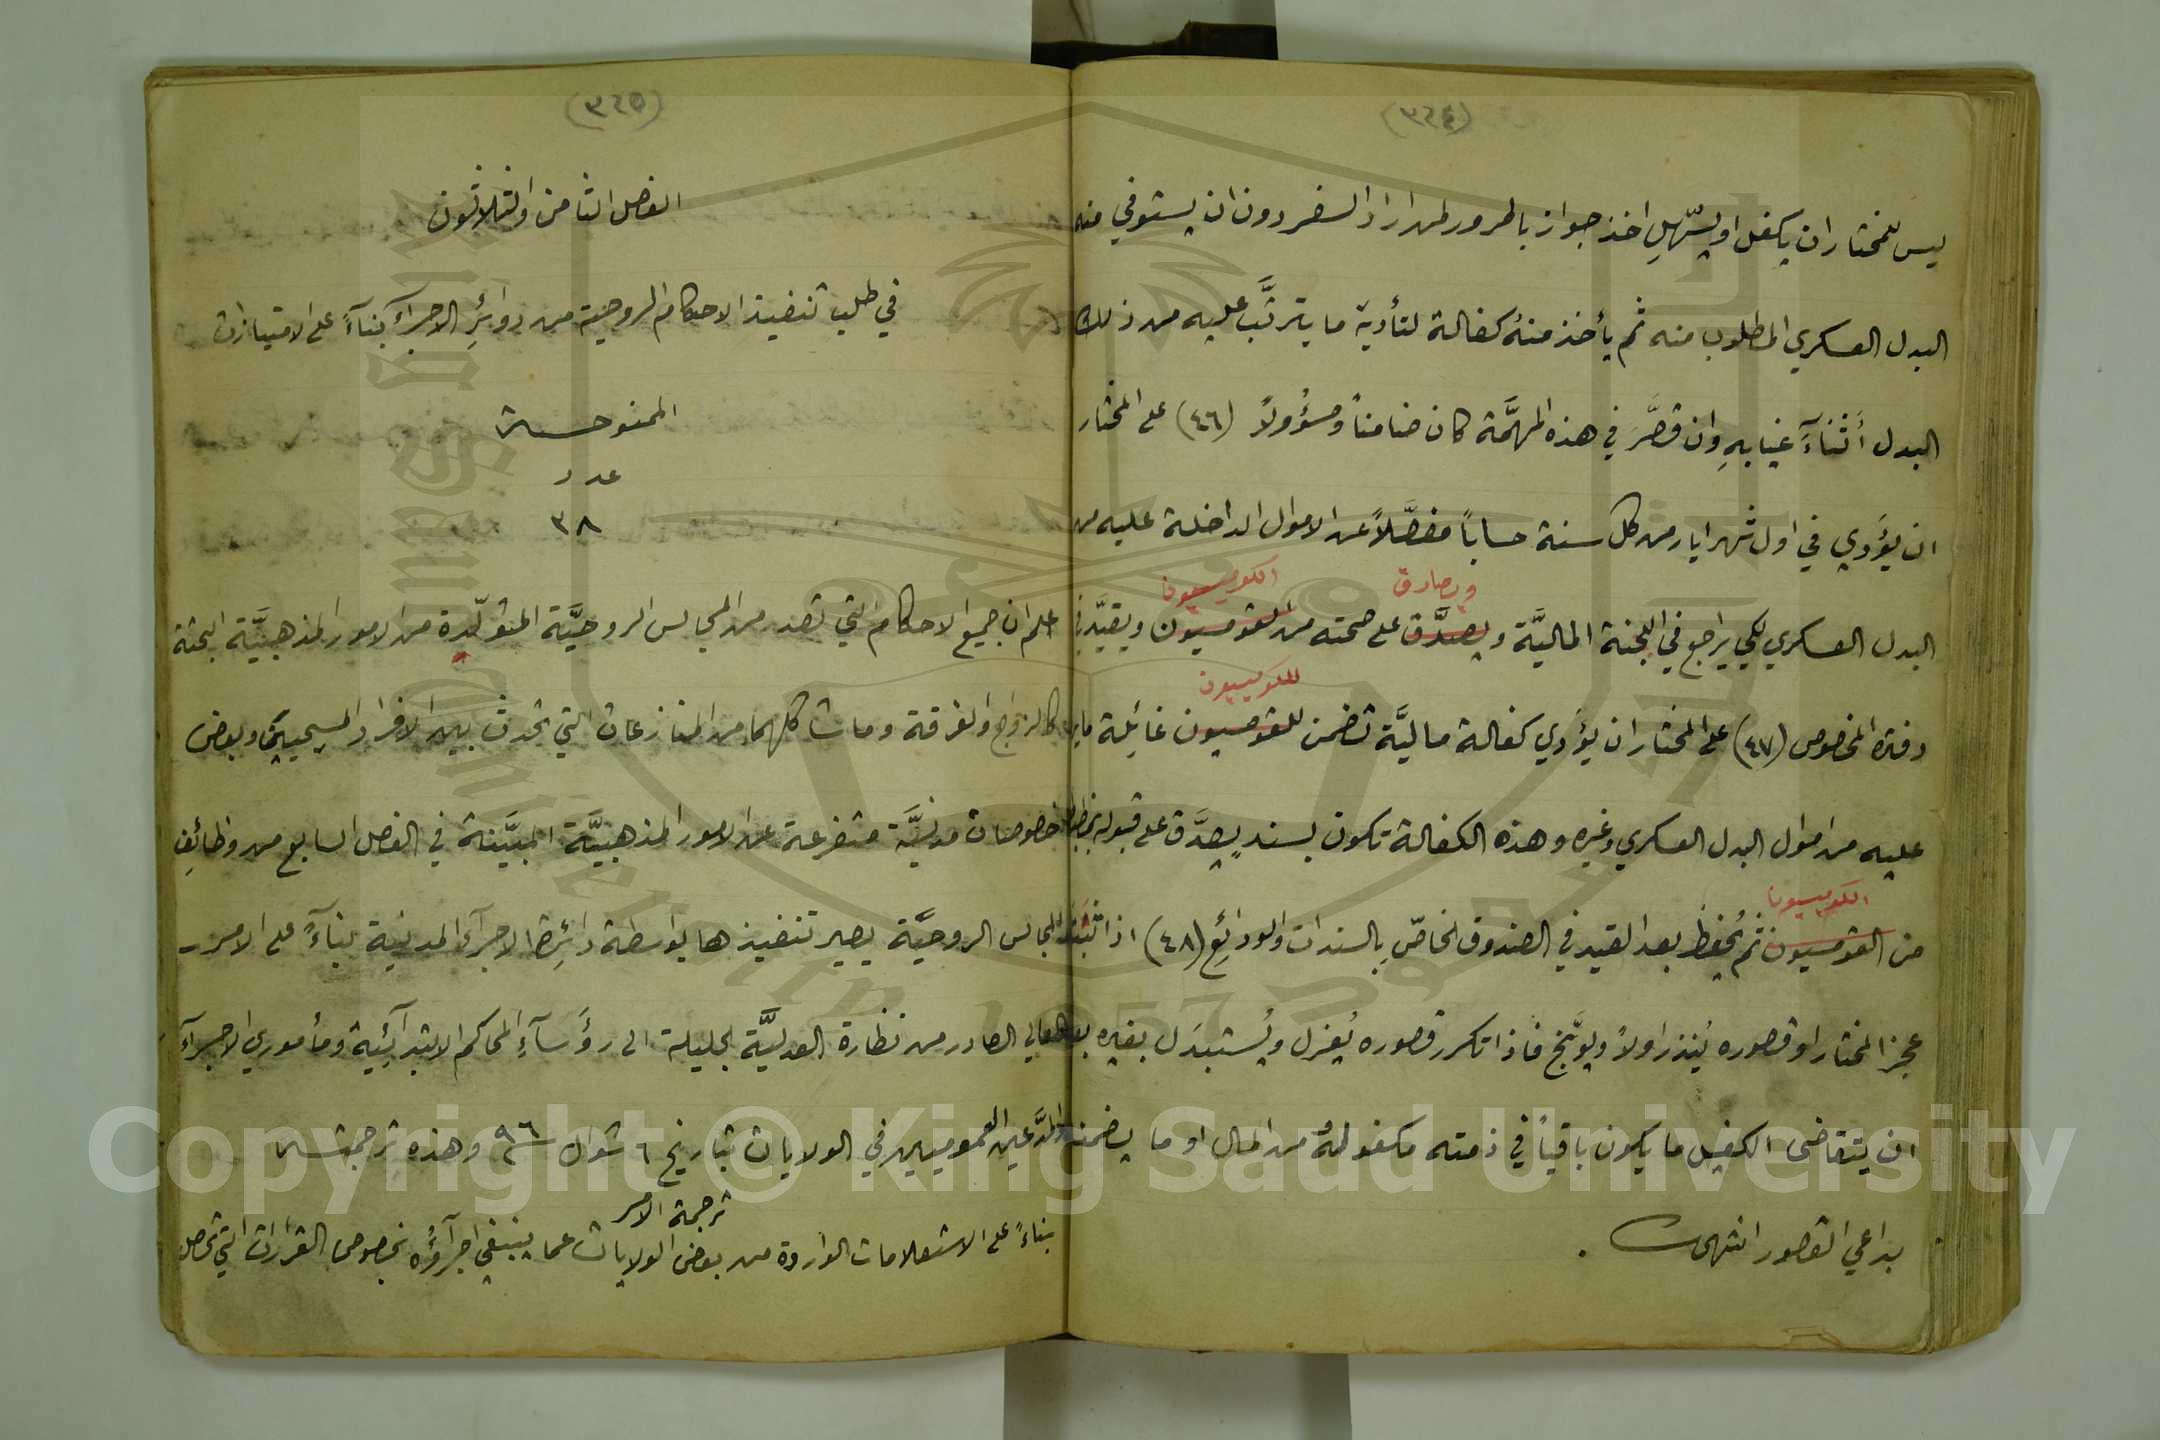 (٣٤٤)
ليس للمختار ان يكفل او يسّهل اخذ جواز بالمرور لمن اراد السفر دون ان يستوفي منه
البدل العسكري المطلوب منه ثم يأخذ منهُ كفالة لتأدية ما يترتَّب عليه من ذلك
البدل أَثناءَ غيابهِ وان قصَّرَ في هذه المهمَّة كان ضامناً ومسؤُولاً (٤٦) على المختار
ان يؤَدي في اول شهر ايار من كل سنة حساباً مفصَّلاً عن الاموال الداخلة عليه من
ويصادق الكوميسيون
البدل العسكري لكي يراجع في اللجنة الماليَّة ويصدَّق على صحته من القوميسيون ويقيَّد في
للكوميسيون
دفتره المخصوص (٤٧) على المختار ان يؤَدي كفالة ماليَّة تضمن للقوميسيون غائلة ما
عليه من اموال البدل العسكري وغيره وهذه الكفالة تكون بسندٍ يصدَّق على قبوله
الكوميسيون
من القوميسيون ثم يُحفظ بعد القيد في الصندوق الخاصّ بالسندات والودائع (٤٨) اذا ثبت
عجز المختار او قصوره يُنذر اولاً ويوَّبخ فاذا تكرر قصوره يُعزل ويُستبدَل بغيره بعد
ان يتقاضى الكفيل ما يكون باقياً في ذمته مكفولهُ من المال او ما يضمنه
بداعي القصور انتهى .
(٣٤٥)
الفصل الثامن والثلاثون
في طلب تنفيذ الاحكام الروحية من دوائرِ الاجراءَ بناءً على الامتيازات
الممنوحة
عدد
٣٨
اعلم ان جميع الاحكام التي تصدر من المجالس الروحيَّة المتولّدة من الامور المذهبيَّة البحتة
كالزواج والفرقة وما شاكلهما من المنازعات التي تحدث بين الافراد المسيحيين وبعض
خصوصات مدنيَّة متفرعة عن الامور المذهبيَّة المبيَّنة في الفصل السابع من وظائفِ
المجالس الروحيَّة يصير تنفيذها بواسطة دائرة الاجراءَ المدنية بناءً على الامر
العالي الصادر من نظارة العدليَّة الجليلة الى رؤَساءِ المحاكم الابتدائية ومأموري الاجراءَ
والمدَّعين العموميين في الولايات بتاريخ ٦ شوال سنة ٩٦ وهذه ترجمته
ترجمة الامر
بناءً على الاستعلامات الواردة من بعض الولايات عما ينبغي اجراؤُه بخصوص القرارات التي تحصل
Copyright © King Saud University
King Saud University
1957